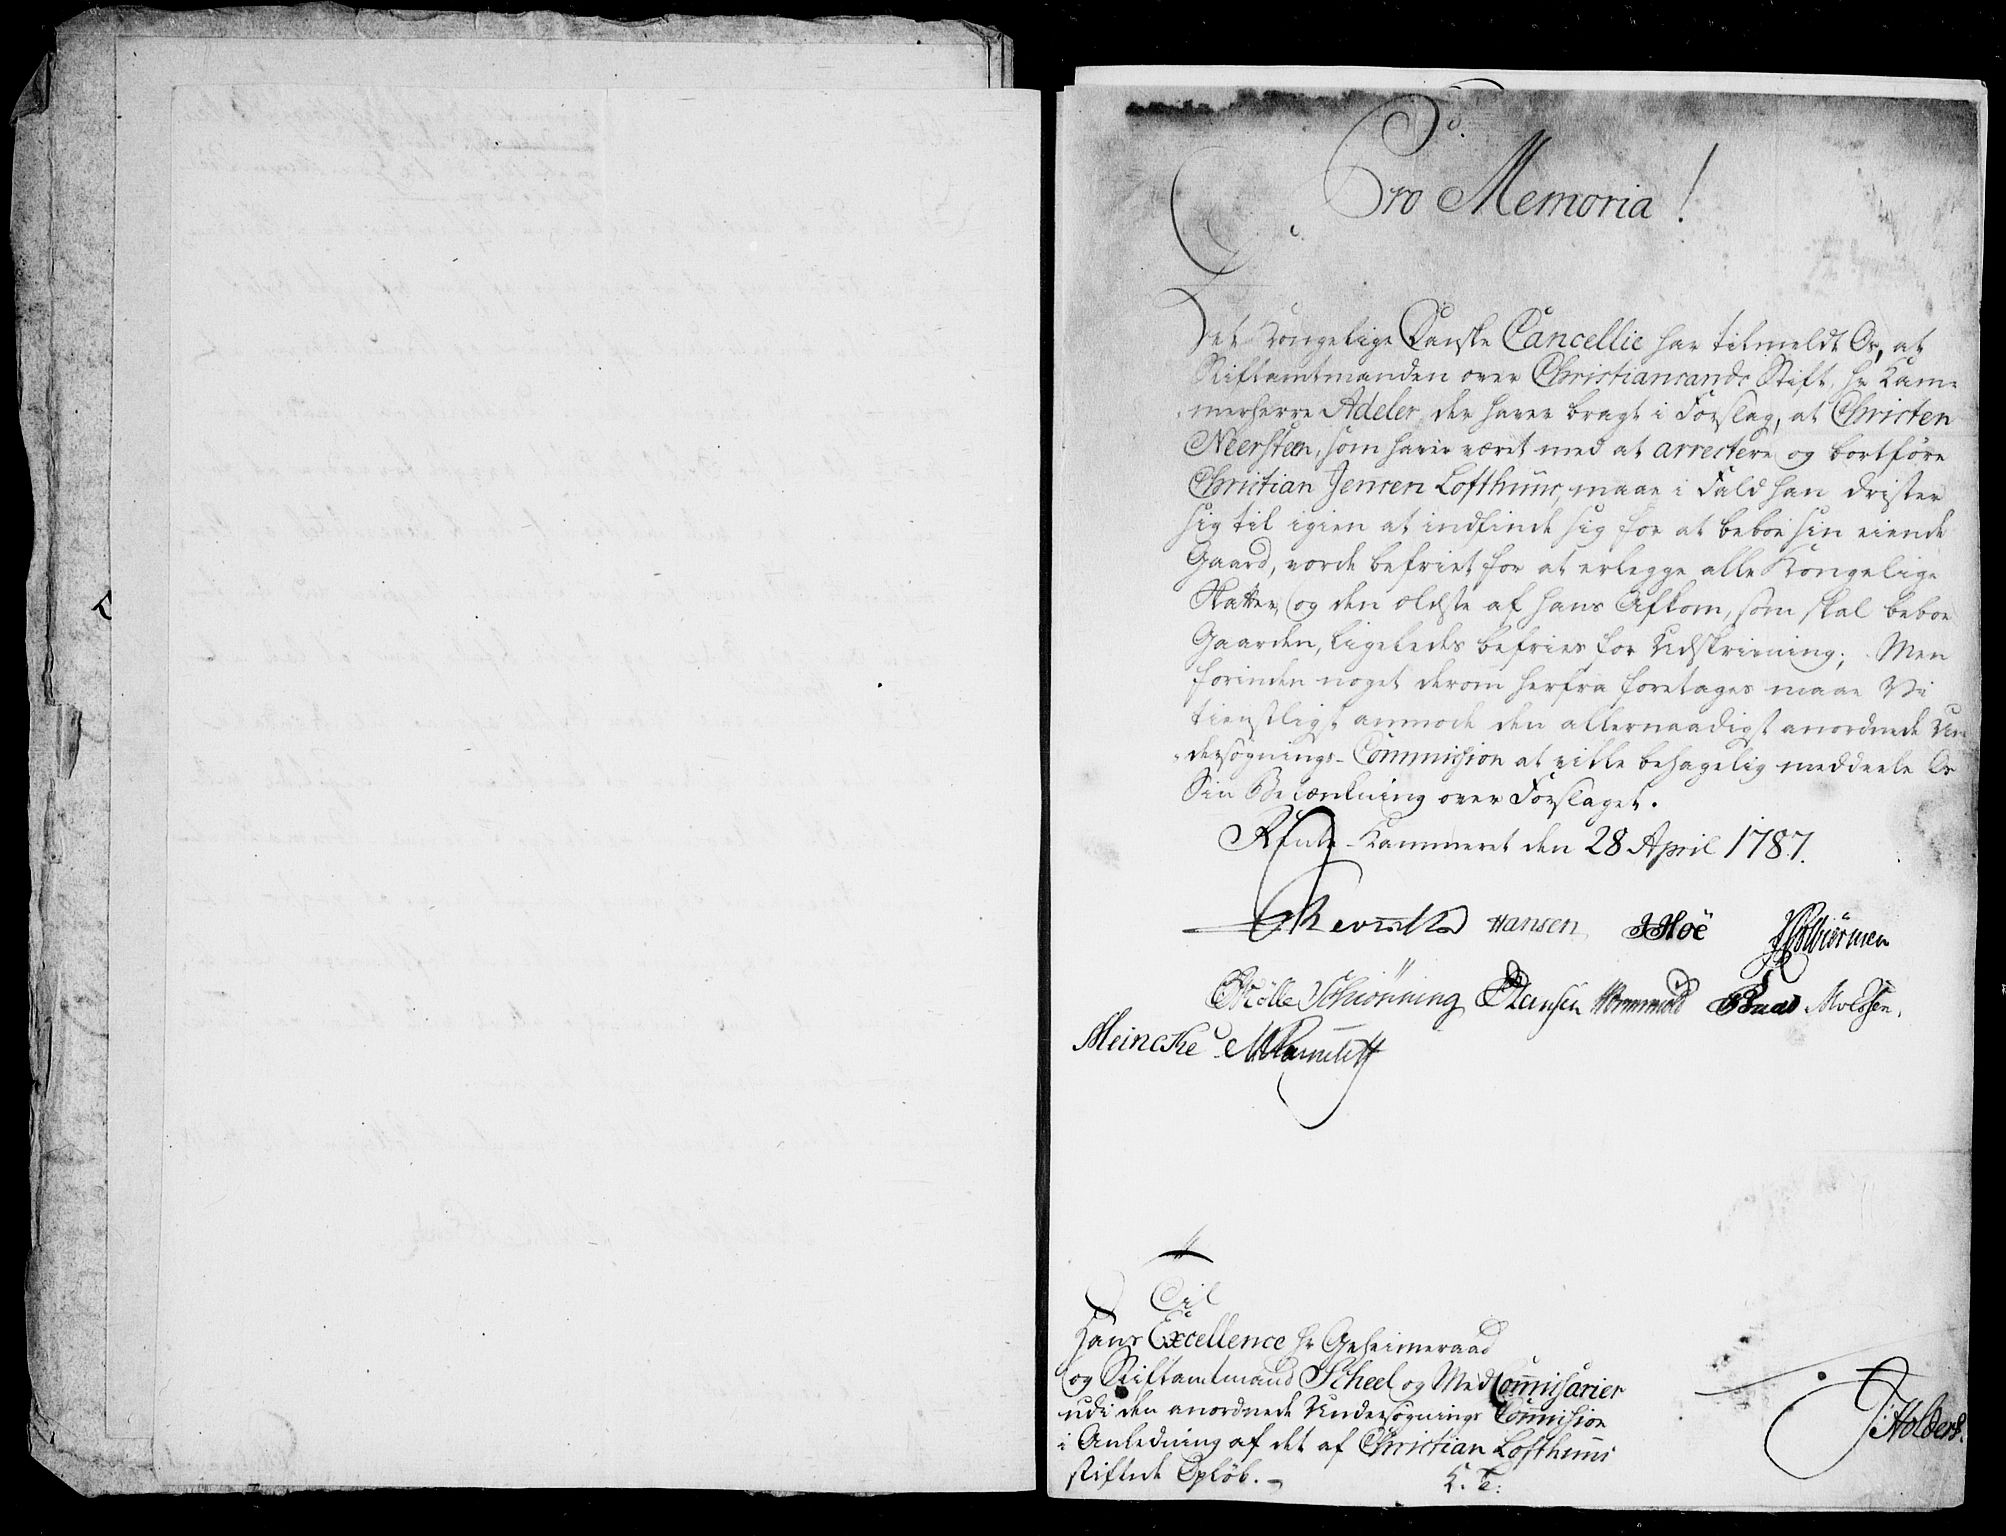 Pro Memoria!
Det Kongelige Danske Cancellie har tilmeldt Os, at
Stiftamtmanden over Christiansands Stift, Hr Kam-
merherre Adeler, der haver bragt i Forslag, at Christen
Neersteen, som haver været med at arrestere og bortføre
Christian Jensen Lofthuus, maae i Fald han drister
sig til igien at indfinde sig for at beboe sin eiende
Gaard, vorde befriet for at erlegge alle Kongelige
Skatter, og den ældste af hans Afkom, som skal beboe
Gaarden, ligeledes befries for Udskrivning; Men
forinden noget derom herfra foretages maae Vi
tienstligst anmode den allernaadigst anordnede Un-
dersøgnings-Commission at ville behagelig meddeele Os
Sin Betænkning over Forslaget.
Rente-Kammeret den 28 April 1787.
Reventlow Hansen JHoë
Schiønning
Meincke
Til
Hans Excellence Hr Geheimeraad
og Stiftamtmand Scheel og Med Commissarier
udi den anordnede Undersøgnings Commission
i Anledning af det af Christian Lofthuus
stiftede Opløb.-